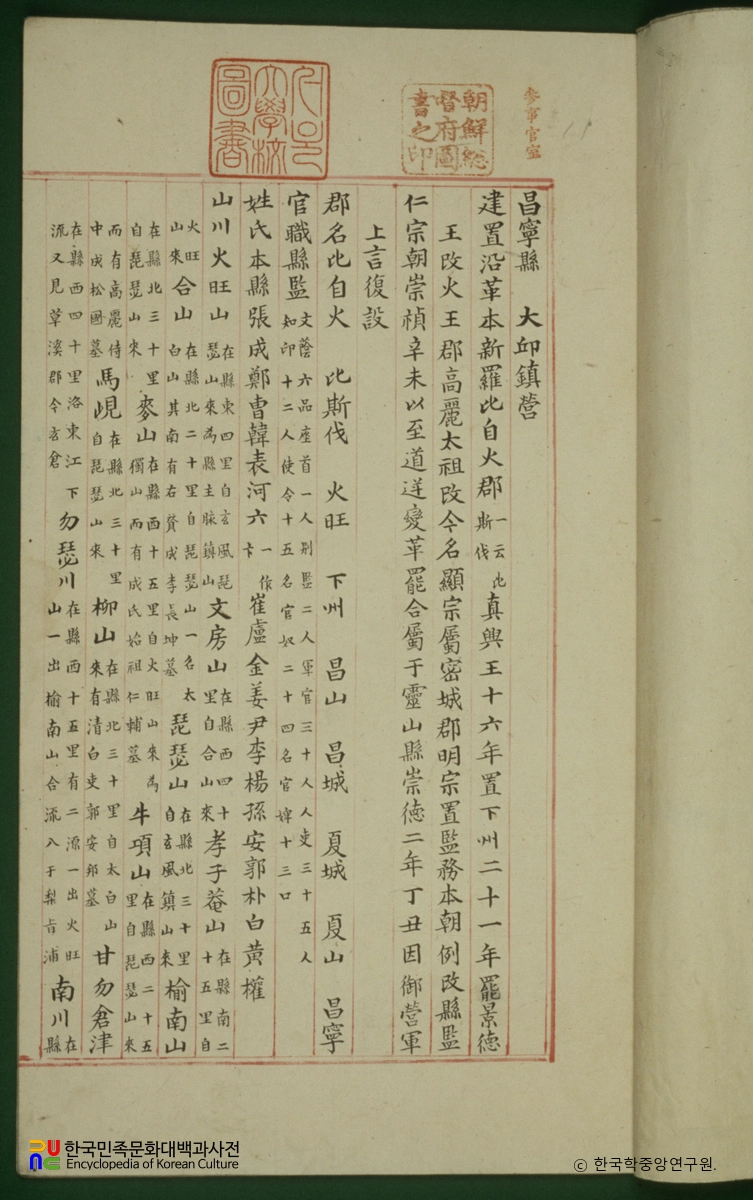 參事官室
朝鮮總
督府圖
書之印
서울
大學校
圖書
昌寧縣 大邱鎮營
建置沿革本新羅比自火郡一云比斯伐真興王十六年置下州二十一年罷景德
王改火王郡高麗太祖改今名顯宗屬密城郡明宗置監務本朝例改縣監
仁宗朝崇禎辛未以至道逆變革罷合屬于靈山縣崇德二年丁丑因御營軍
上言復設
郡名比自火 比斯伐 火旺 下州 昌山 昌城 夏城 夏山 昌寧
官職縣監文蔭六品座首一人別監二人軍官三十人人吏三十五人知印十二人使令十五名官奴二十四名官婢十三口
姓氏本縣張成鄭曺韓表河六一作卞崔盧金姜尹李楊孫安郭朴白黃權
山川火旺山在縣東四里自玄風琵瑟山來為縣主脉鎮山文房山在縣西四十里自合山來孝子菴山在縣南二十五里自
火旺山來合山在縣北二十里自琵瑟山一名太白山其南有右贊成李長坤墓琵瑟山在縣北三十里自玄風鎮山來楡南山
在縣北三十里自琵瑟山來麥山在縣西十五里自火旺山來為獨山而有成氏始祖仁輔墓牛項山在縣西二十五里自琵瑟山來
而有高麗侍中成松國墓馬峴在縣北三十里自琵瑟山來柳山在縣北三十里自太白山來有清白吏郭安邦墓甘勿倉津
在縣西四十里洛東江下流又見草溪郡今玄倉勿瑟川在縣西十五里有二源一出火旺山一出楡南山合流入于梨旨浦南川在縣
한국민족문화대백과사전
Encyclopedia of Korean Culture
© 한국학중앙연구원.